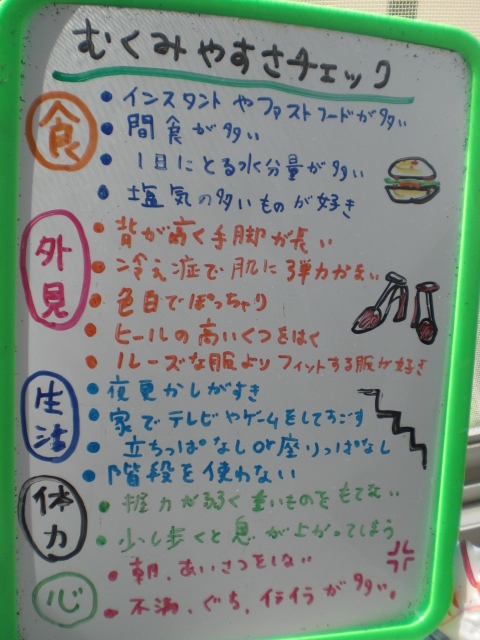 むくみやすさチェック
食
• インスタントやファストフードが多い
• 間食が多い
• 1日にとる水分量が多い
• 塩気の多いものが好き
外見
• 背が高く手脚が長い
• 冷え症で肌に弾力がない
• 色白でぽっちゃり
• ヒールの高いくつをはく
• ルーズな服よりフィットする服が好き
生活
• 夜更かしがすき
• 家でテレビやゲームをしてすごす
• 立ちっぱなしor座りっぱなし
• 階段を使わない
体力
• 握力が弱く重いものをもてない
• 少し歩くと息が上がってしまう
心
• 朝、あいさつをしない
• 不満、ぐち、イライラが多い。